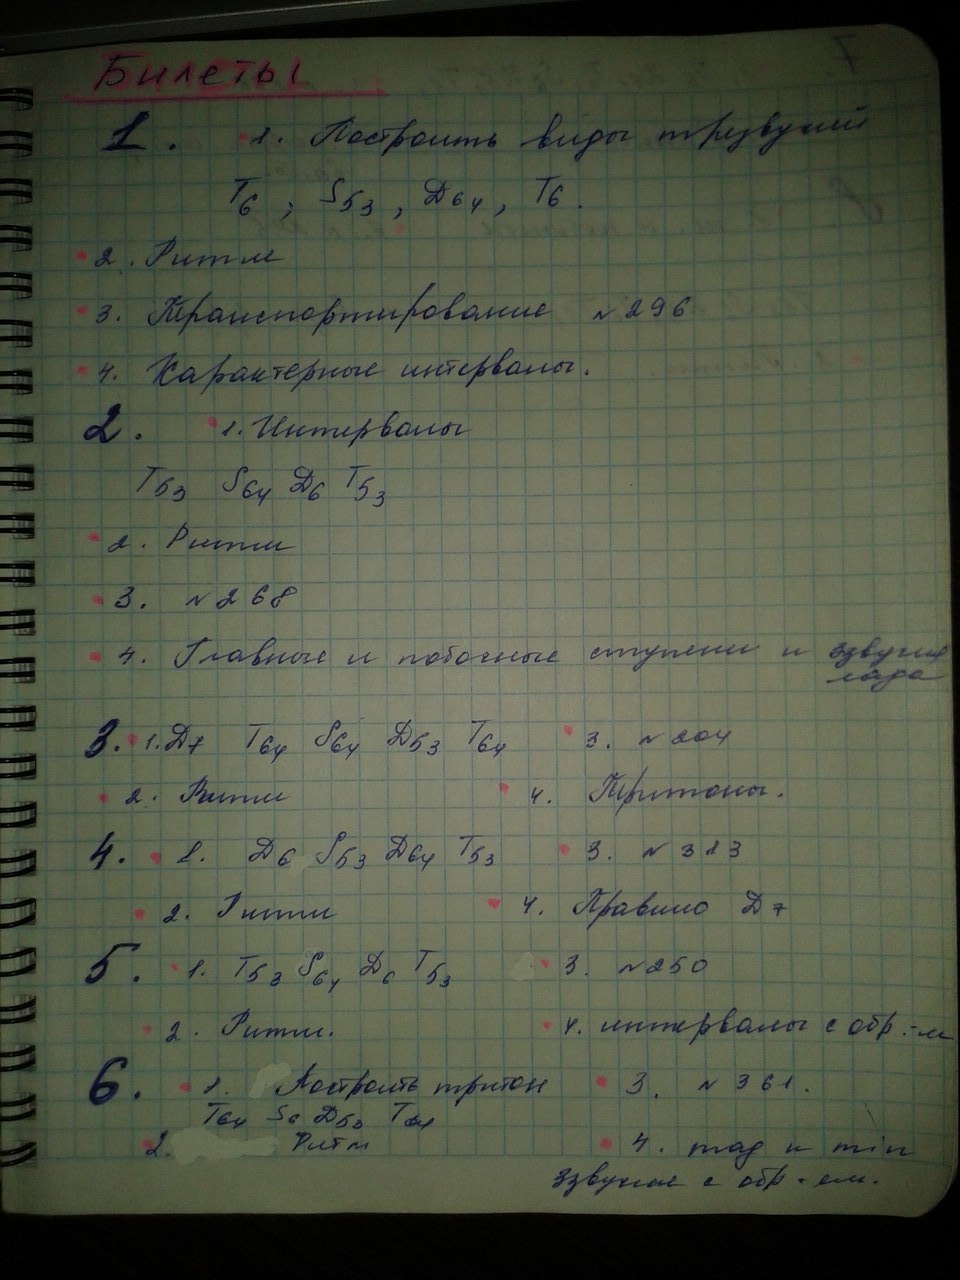 Билеты
1. 1. Построить виды трезвучий
T6, S53, D64, T6.
2. Ритм
3. Транспортирование №296
4. Характерные интервалы.
2. 1. Интервалы
T53 S64 D6 T53
2. Ритм
3. №268
4. Главные и побочные ступени и ззвучия
лада
3. 1. D7 T64 S64 D53 T64 3. №204
2. Ритм 4. Тритоны.
4. 1. D6 S53 D64 T53 3. №313
2. Ритм 4. Правило D7
5. 1. T53 S64 D6 T53 3. №250
2. Ритм. 4. интервалы с обр.-м
6. 1. Построить тритон 3. №361.
T64 S6 D53 T64
2. Ритм 4. mag и min
ззвучие с обр-ем.